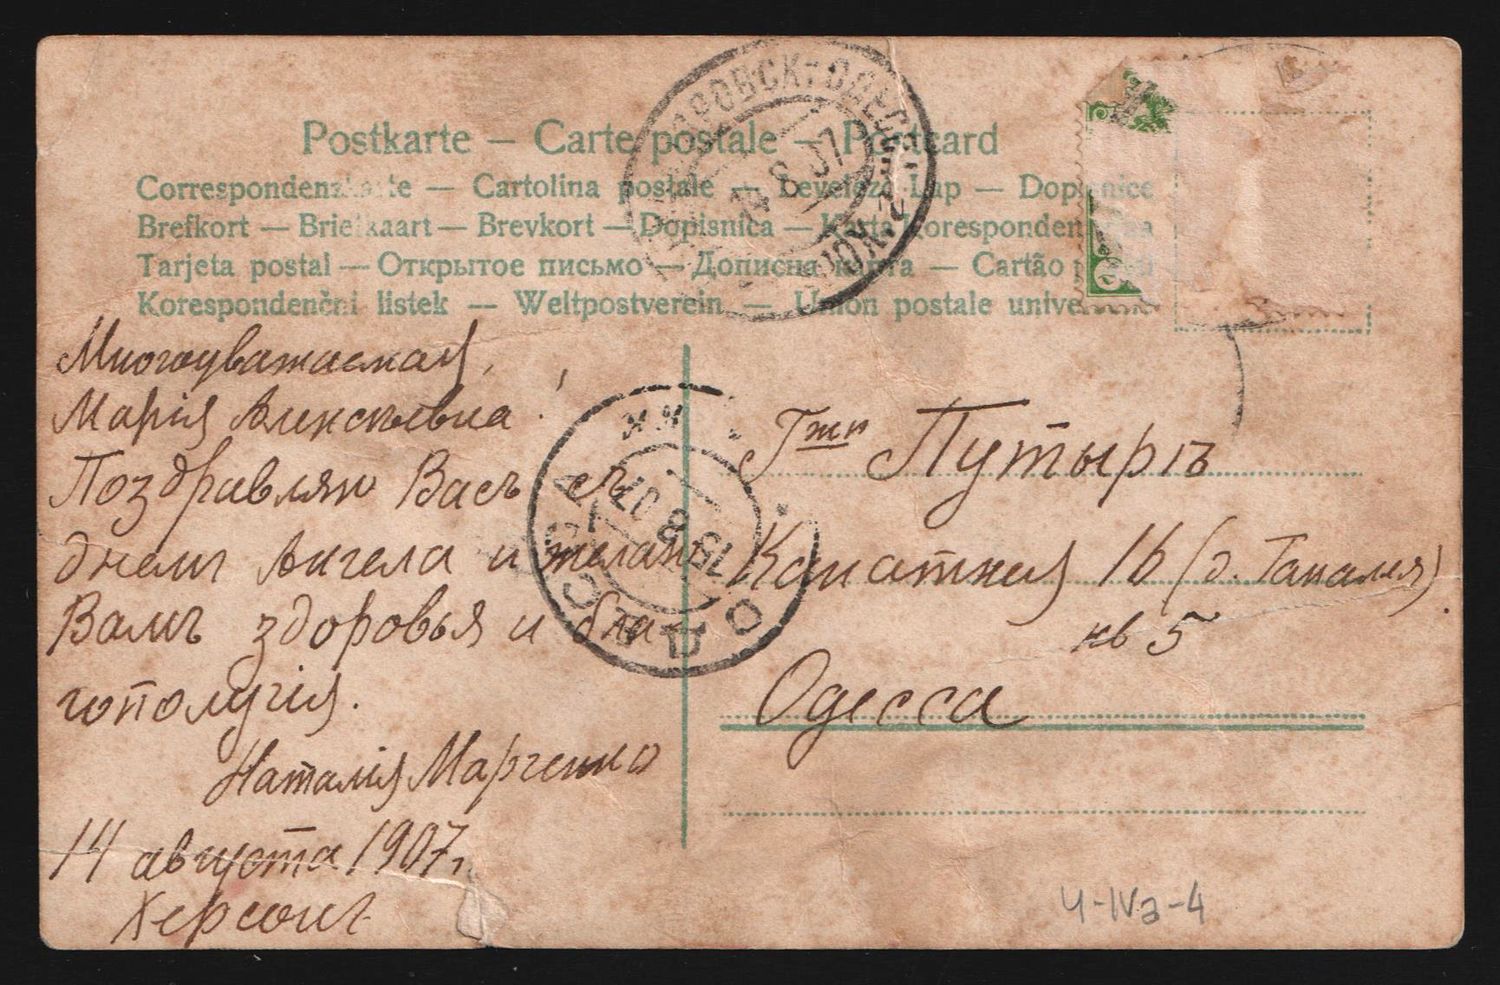 Postkarte — Carte postale — Postcard
Cartolina postale — Levelező Lap — Dopisnice
Brefkort — Briefkaart — Brevkort — Dopisnica — Karta
Tarjeta postal — Открытое письмо — Дописна карта — Cartão
Korespondenční listek — Weltpostverein — Union postale
ОДЕССК
14 8 07
2
Многоуважаемая,
Марія Алексѣевна!
Поздравляю Васъ съ
днемъ Ангела и желаю
Вамъ здоровья и бла-
гополучія.
Наталія Марченко
14 августа 1907 г.
Херсонъ
ОДЕССА
15 8 07
Г-жѣ Путырь
Канатная 16
кв 5
Одесса
Ч-IVа-4